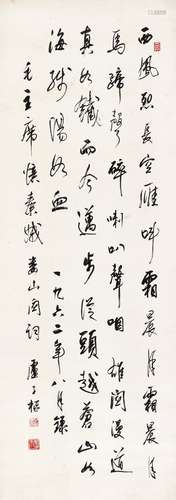 西風烈長空雁叫霜晨月霜晨月
馬蹄聲碎喇叭聲咽雄関漫道
真如鐵而今邁步從頭越蒼山如
海殘陽如血 一九六二年八月錄
毛主席憶秦娥 婁山関詞 盧子樞